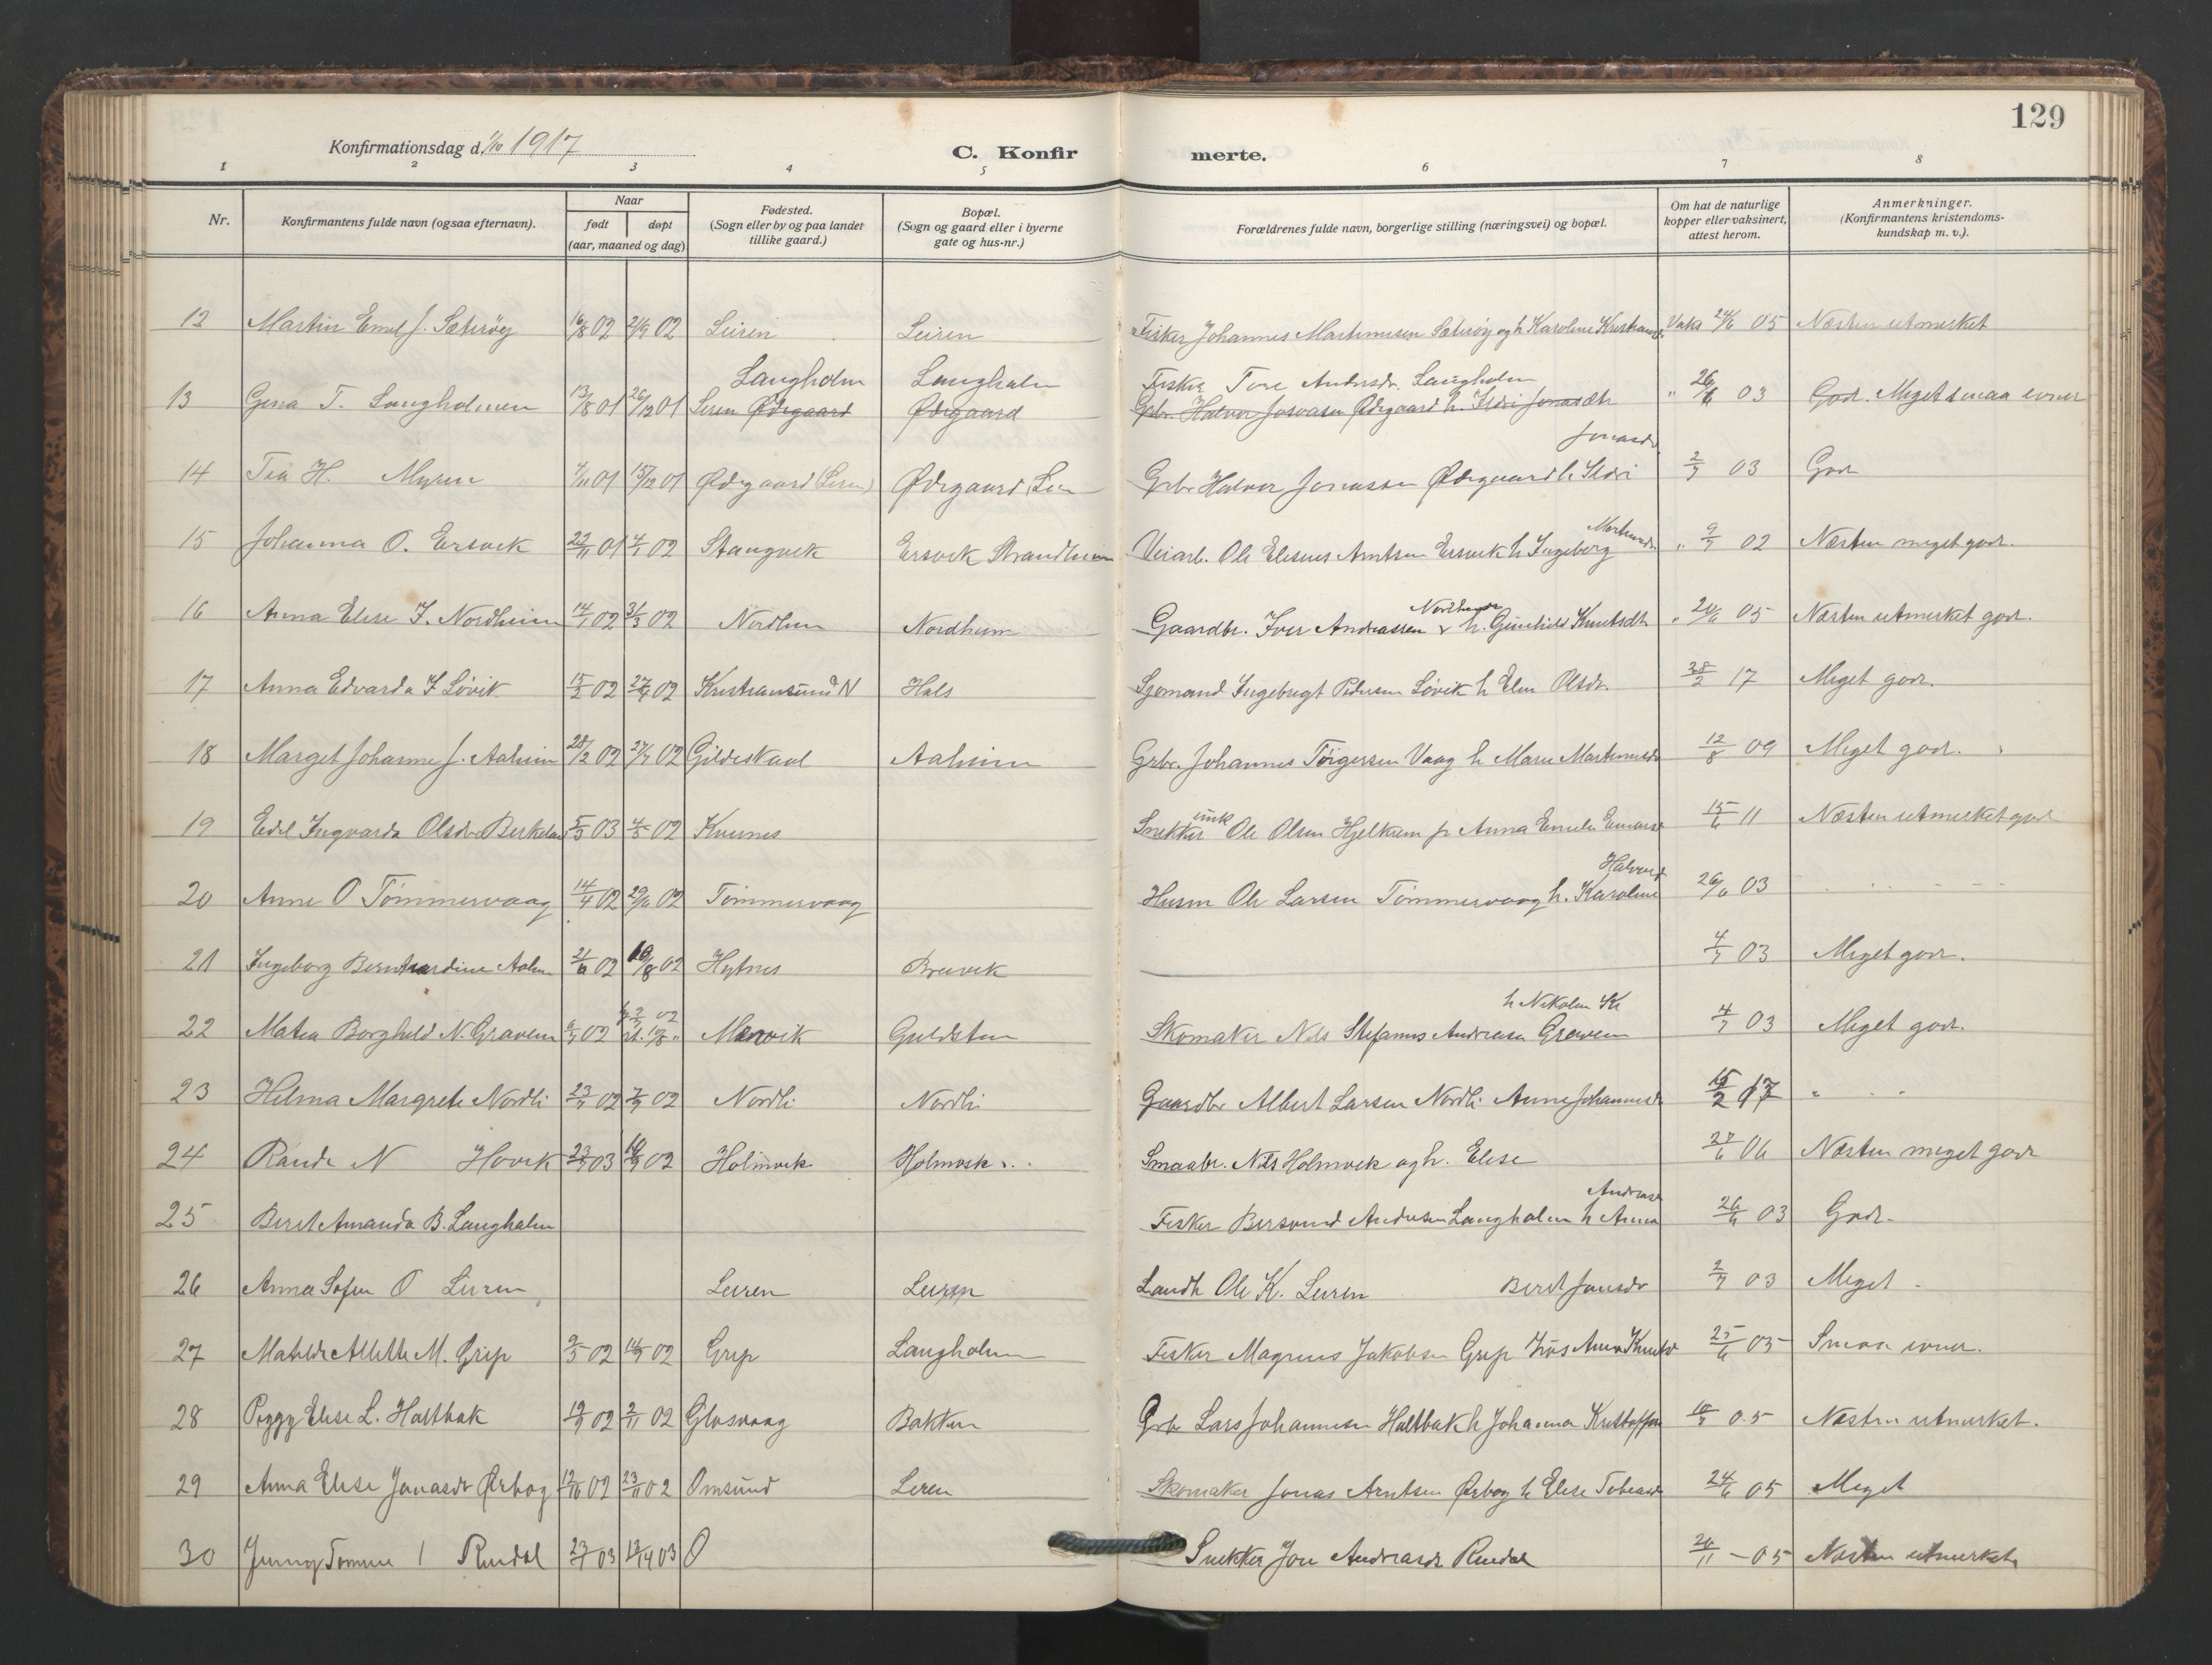 129
Konfirmationsdag d. 7/10 1917
C. Konfir merte.
1 2 3 4 5 6 7 8
Nr. Konfirmantens fulde navn (ogsaa efternavn). Naar født døpt (aar, maaned og dag) Fødested. (Sogn eller by og paa landet tillike gaard.) Bopæl. (Sogn og gaard eller i byerne gate og hus-nr.) Forældrenes fulde navn, borgerlige stilling (næringsvei) og bopæl. Om hat de naturlige kopper eller vaksinert, attest herom. Anmerkninger. (Konfirmantens kristendoms-kundskap m. v.).
12 Martin Emil J. Sæterøy 16/8 02 21/9 02 Leiren Leiren Fisker Johannes Martinusen Sæterøy og h Karoline Kristiansd. Vaks 24/6 05 Næsten utmerket
Langholm Langholm Fisker Tore Andersdr. Langholm
13 Gina T. Langholmen 13/8 01 26/12 01 Leren Ødegaard Ødegaard Grbr. Halvor Jonasen Ødegaard h. Ildri Jonasdtr " 26/6 03 God. Meget smaa evner
Jonasdr
14 Tea H. Myren 4/11 01 15/12 01 Ødegaard (Leren) Ødegaard, Leren Grbr Halvor Jonassen Ødegaard h Ildri 2/7 03 God
Martinusdr
15 Johanna O. Ersvik 22/11 01 4/1 02 Stangvik Ersvik Strandheim Veiarb. Ole Eliseus Arntsen Ersvik h Ingeborg " 9/7 02 Næsten meget god.
Nordheim
16 Anna Elise I. Nordheim 14/1 02 31/3 02 Nordheim Nordheim Gaardbr. Iver Andreassen & h. Gunhild Knutsdtr " 24/6 05 Næsten utmerket god.
17 Anna Edvarda I Løvik 15/2 02 27/4 02 Kristiansund N Hals Sjømand Ingebrigt Pedersen Løvik h Elen Olsdr. 28/2 17 Meget god.
18 Marget Johanne J. Aaheim 28/2 02 27/7 02 Gildeskaal Aaheim Grbr. Johannes Torgersen Vaag h Maren Martinusdr 12/8 09 Meget god.
enke
19 Edel Ingvarda Olsdr Birkeland 5/3 03 4/5 02 Kvernes Snekker Ole Olsen Hjelkrem p Anna Emilie Einarsd 15/6 11 Næsten utmerket god
Halvorsd
20 Anne O Tømmervaag 14/4 02 29/6 02 Tømmervaag Husm Ole Larsen Tømmervaag h. Karoline 26/6 03 " " " "
21 Ingeborg Bernhardine Aahm 2/6 02 10/8 02 Hytnes Breivik 4/7 03 Meget god.
h Nikolin Kr
22 Matea Borghild N. Gravem 6/7 02 st. 10/8 " Mørvik Guldsten Skomaker Nils Stefanus Andreasen Gravem 4/7 03 Meget god.
23 Hilma Margrete Nordli 23/7 02 7/9 02 Nordli Nordli Gaardbr Albert Larsen Nordli Anne Johannesd 15/2 17 " " "
24 Randi N Hovik 23/7 03 14/9 02 Holmvik Holmvik Smaabr. Nils Holmvik og h. Elise 27/6 06 Næsten meget god
Andreasd
25 Berit Amanda B. Langholm Fisker Bersvend Andersen Langholm h Anna 26/6 03 God.
26 Anna Sofie O Leiren Leiren Leiren Landh Ole K. Leiren Berit Jonsdr 2/7 03 Meget "
27 Matilde Alette M. Grip 9/5 02 14/9 02 Grip Langholmen Fisker Magnus Jakobsen Grip hos Anna Knutsd 25/6 05 Smaa evner.
28 Peggy Elise L. Haltbak 19/9 02 2/11 02 Glosvaag Bakken Grb Lars Johannesen Haltbak h Johanna Kristoffers 10/7 05 Næsten utmerket.
29 Anna Elise Jonasdr Ørbog 12/10 02 23/11 02 Omsund Leren Skomaker Jonas Arntsen Ørbog h Elise Tobiasd 24/6 05 Meget
30 Jenny Tomine J Rindal 23/1 03 13/4 03 O Snekker Jon Andreasdr Rindal 20/11 – 05 Næsten utmerket